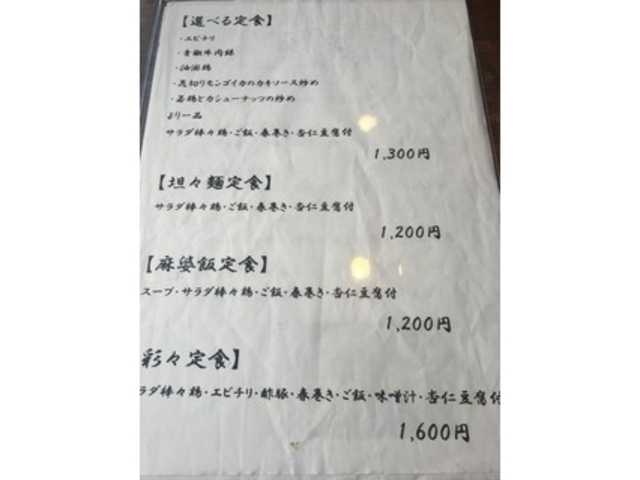 【選べる定食】
・エビチリ
・青椒牛肉絲
・油淋鶏
・花切りモンゴイカのカキソース炒め
・若鶏とカシューナッツの炒め
より一品
サラダ棒々鶏・ご飯・春巻き・杏仁豆腐付
1,300円
【坦々麺定食】
サラダ棒々鶏・ご飯・春巻き・杏仁豆腐付
1,200円
【麻婆飯定食】
スープ・サラダ棒々鶏・ご飯・春巻き・杏仁豆腐付
1,200円
彩々定食】
ラダ棒々鶏・エビチリ・酢豚・春巻き・ご飯・味噌汁・杏仁豆腐付
1,600円